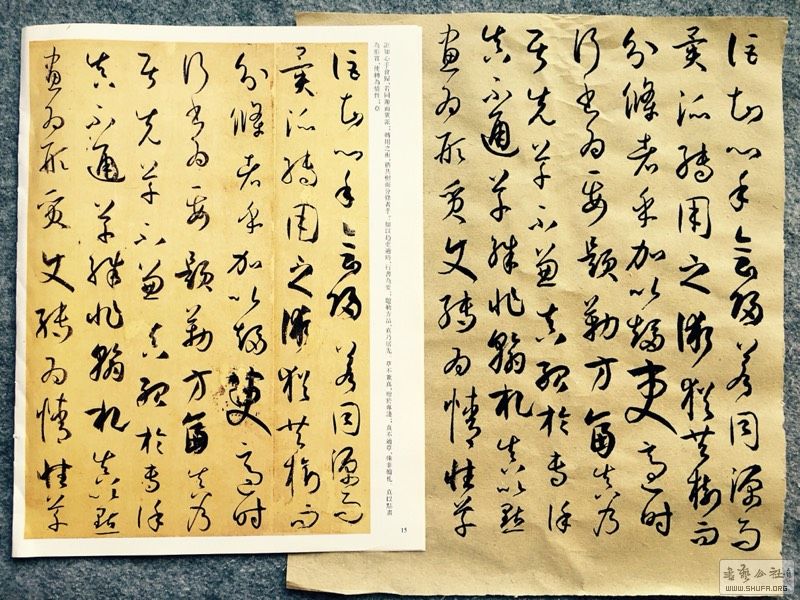 詎知心手會歸若同源而
異派轉用之術猶共樹而
分條者乎加以趨變適時
行書為要題勒方畐真乃
居先草不兼真殆於專謹
真不通草殊非翰札真以點
畫為形質使轉為情性草
詎知心手會歸,若同源而異派;轉用之術,猶共樹而分條者乎?加以趨變適時,行書為要;題勒方畐,真乃居先。草不兼真,殆於專謹;真不通草,殊非翰札。真以點畫
為形質,使轉為情性;草
詎知心手會歸若同源而
異派轉用之術猶共樹而
分條者乎加以趨變適時
行書為要題勒方畐真乃
居先草不兼真殆於專謹
真不通草殊非翰札真以點
畫為形質使轉為情性草
15
WWW.SHUFA.ORG